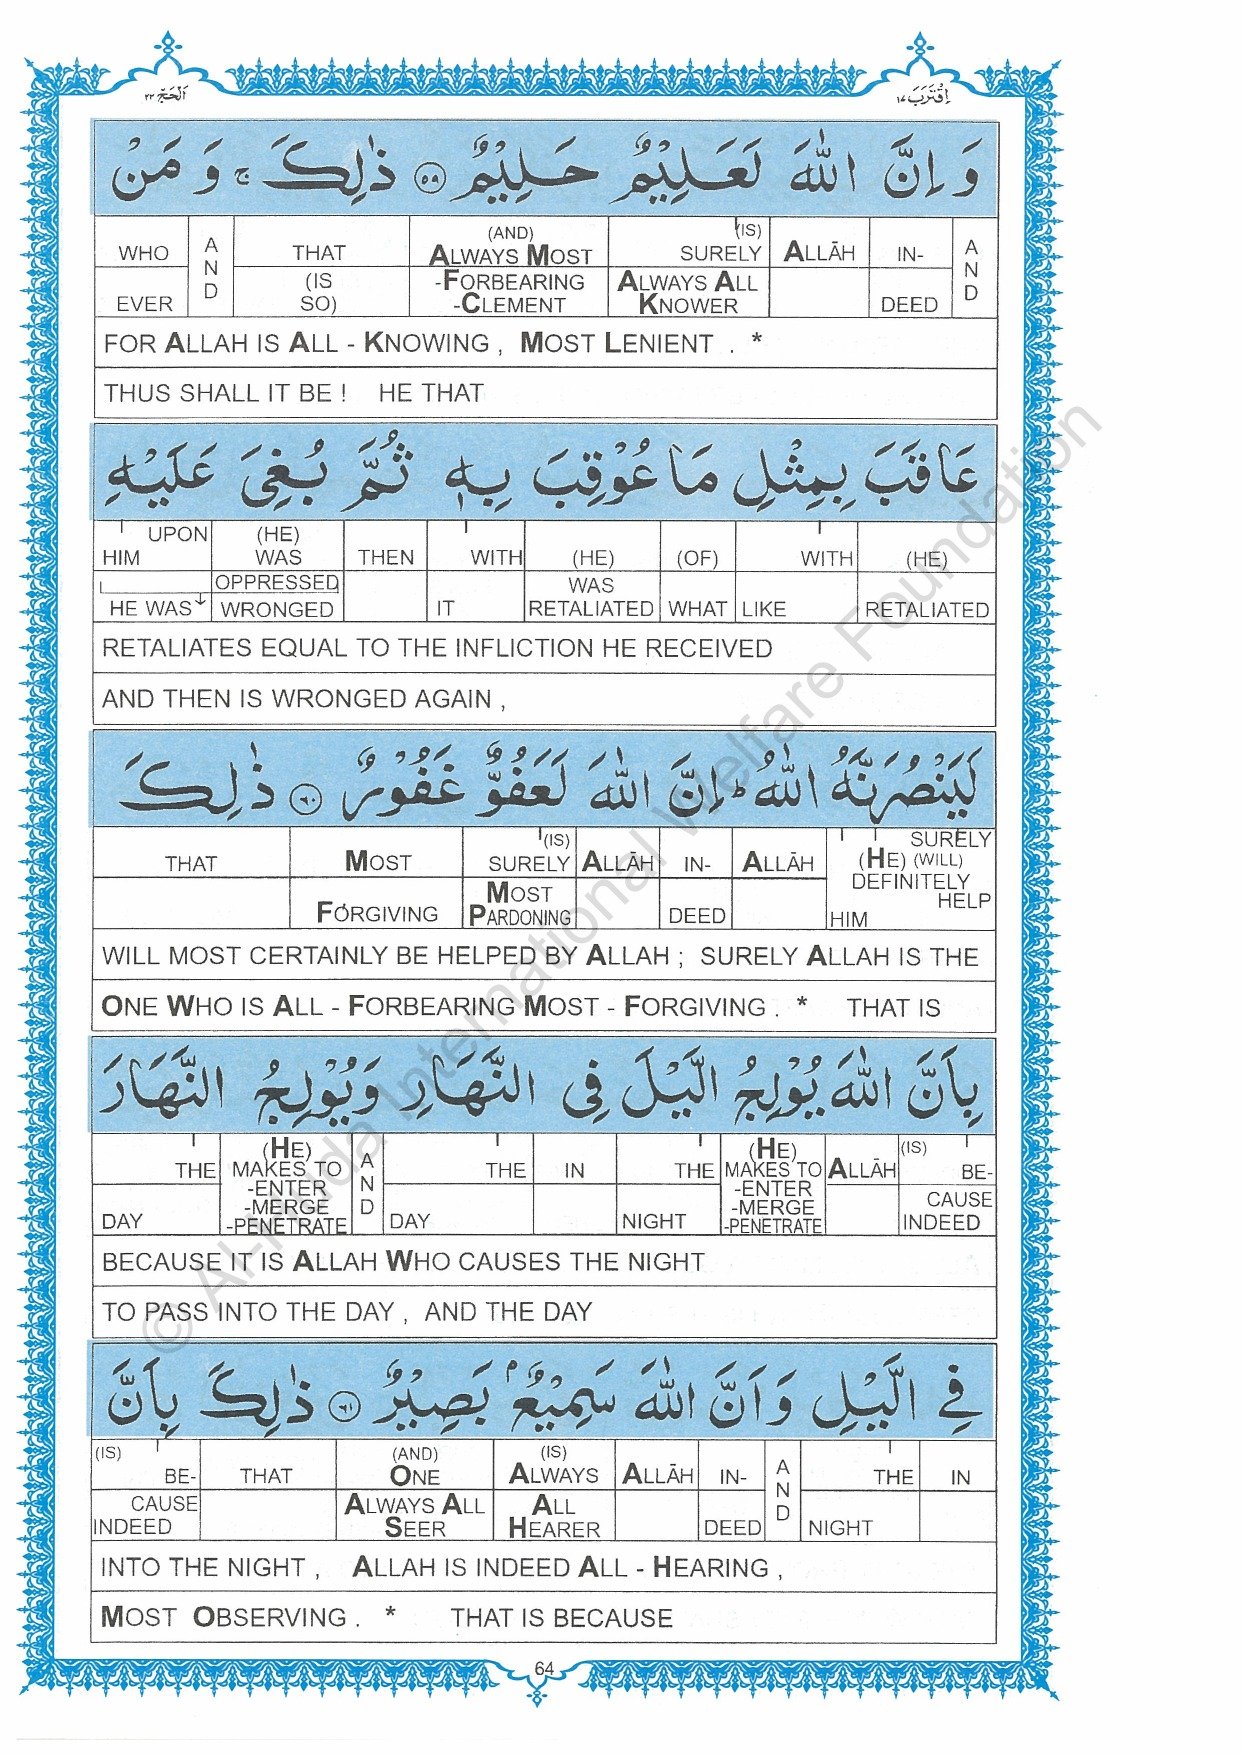 اَلْحَجّ ٢٢
اِقْتَرَبَ ١٧
وَ اِنَّ اللّٰهَ لَعَلِيْمٌ حَلِيْمٌ ٥٩ ذٰلِكَ ج وَ مَنْ
WHO AND THAT (AND) ALWAYS MOST (IS) SURELY ALLĀH IN- AND
EVER (IS SO) -FORBEARING -CLEMENT ALWAYS ALL KNOWER DEED
FOR ALLAH IS ALL - KNOWING , MOST LENIENT . *
THUS SHALL IT BE ! HE THAT
عَاقَبَ بِمِثْلِ مَا عُوْقِبَ بِهٖ ثُمَّ بُغِيَ عَلَيْهِ
UPON (HE) WAS THEN WITH (HE) (OF) WITH (HE)
HIM OPPRESSED WAS
HE WAS WRONGED IT RETALIATED WHAT LIKE RETALIATED
RETALIATES EQUAL TO THE INFLICTION HE RECEIVED
AND THEN IS WRONGED AGAIN ,
لَيَنْصُرَنَّهُ اللّٰهُ ط اِنَّ اللّٰهَ لَعَفُوٌّ غَفُوْرٌ ٦٠ ذٰلِكَ
THAT MOST (IS) SURELY ALLĀH IN- ALLĀH SURELY (HE) (WILL) DEFINITELY
FORGIVING MOST PARDONING DEED HELP HIM
WILL MOST CERTAINLY BE HELPED BY ALLAH ; SURELY ALLAH IS THE
ONE WHO IS ALL - FORBEARING MOST - FORGIVING . * THAT IS
بِاَنَّ اللّٰهَ يُوْلِجُ الَّيْلَ فِى النَّهَارِ وَيُوْلِجُ النَّهَارَ
THE (HE) MAKES TO AND THE IN THE (HE) MAKES TO ALLĀH (IS) BE-
DAY -ENTER -MERGE -PENETRATE DAY NIGHT -ENTER -MERGE -PENETRATE CAUSE INDEED
BECAUSE IT IS ALLAH WHO CAUSES THE NIGHT
TO PASS INTO THE DAY , AND THE DAY
فِى الَّيْلِ وَ اَنَّ اللّٰهَ سَمِيْعٌۢ بَصِيْرٌ ٦١ ذٰلِكَ بِاَنَّ
(IS) BE- THAT (AND) ONE (IS) ALWAYS ALLĀH IN- AND THE IN
CAUSE INDEED ALWAYS ALL SEER ALL HEARER DEED NIGHT
INTO THE NIGHT , ALLAH IS INDEED ALL - HEARING ,
MOST OBSERVING . * THAT IS BECAUSE
64
© Al-Huda International Welfare Foundation